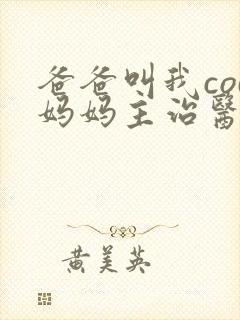 爸爸叫我co
妈妈主治醫
黄美英